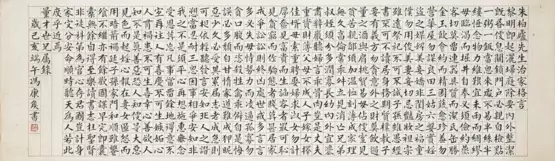 朱柏廬先生治家格言
黎明即起灑掃庭除要內外整潔
既昏便息關鎖門戶必親自檢點
一粥一飯當思來處不易半絲半
縷恆念物力維艱宜未雨而綢繆
毋臨渴而掘井自奉必須儉約宴
客切勿留連器具質而潔瓦缶勝
金玉飲食約而精園蔬愈珍饈勿
營華屋勿謀良田三姑六婆實淫
盜之媒婢美妾嬌非閨房之福奴
僕勿用俊美妻妾切忌艷妝祖宗
雖遠祭祀不可不誠子孫雖愚經
書不可不讀居身務期質樸教子
要有義方勿貪意外之財勿飲過
量之酒與肩挑貿易勿佔便宜見
貧苦親鄰須多溫恤刻薄成家理
無久享倫常乖舛立見消亡兄弟
叔姪須分多潤寡長幼內外宜法
肅辭嚴聽婦言乖骨肉豈是丈夫
重資財薄父母不成人子嫁女擇
佳婿毋索重聘娶媳求淑女勿計
厚奩見富貴而生諂容者最可恥
遇貧窮而作驕態者賤莫甚居家
戒爭訟訟則終凶處世戒多言言
多必失毋恃勢力而凌逼孤寡勿
貪口腹而恣殺生禽乖僻自是悔
誤必多頹惰自甘家道難成狎暱
惡少久必受其累屈志老成急則
可相依輕聽發言安知非人之譖
訴當忍耐三思因事相爭安知非
我之不是須平心再想施惠無念
受恩莫忘凡事當留餘地得意不
宜再往人有喜慶不可生妬忌心
人有禍患不可生喜幸心善欲人
見不是真善惡恐人知便是大惡
見色而起淫心報在妻女匿怨而
用暗箭禍延子孫家門和順雖饔
飧不繼亦有餘歡國課早完即囊
橐無餘自得至樂讀書志在聖賢
非徒科第為官心存君國豈計身
家守分安命順時聽天為人若此
庶乎近焉
量才世兄屬錄
歲己亥端午馮康侯書